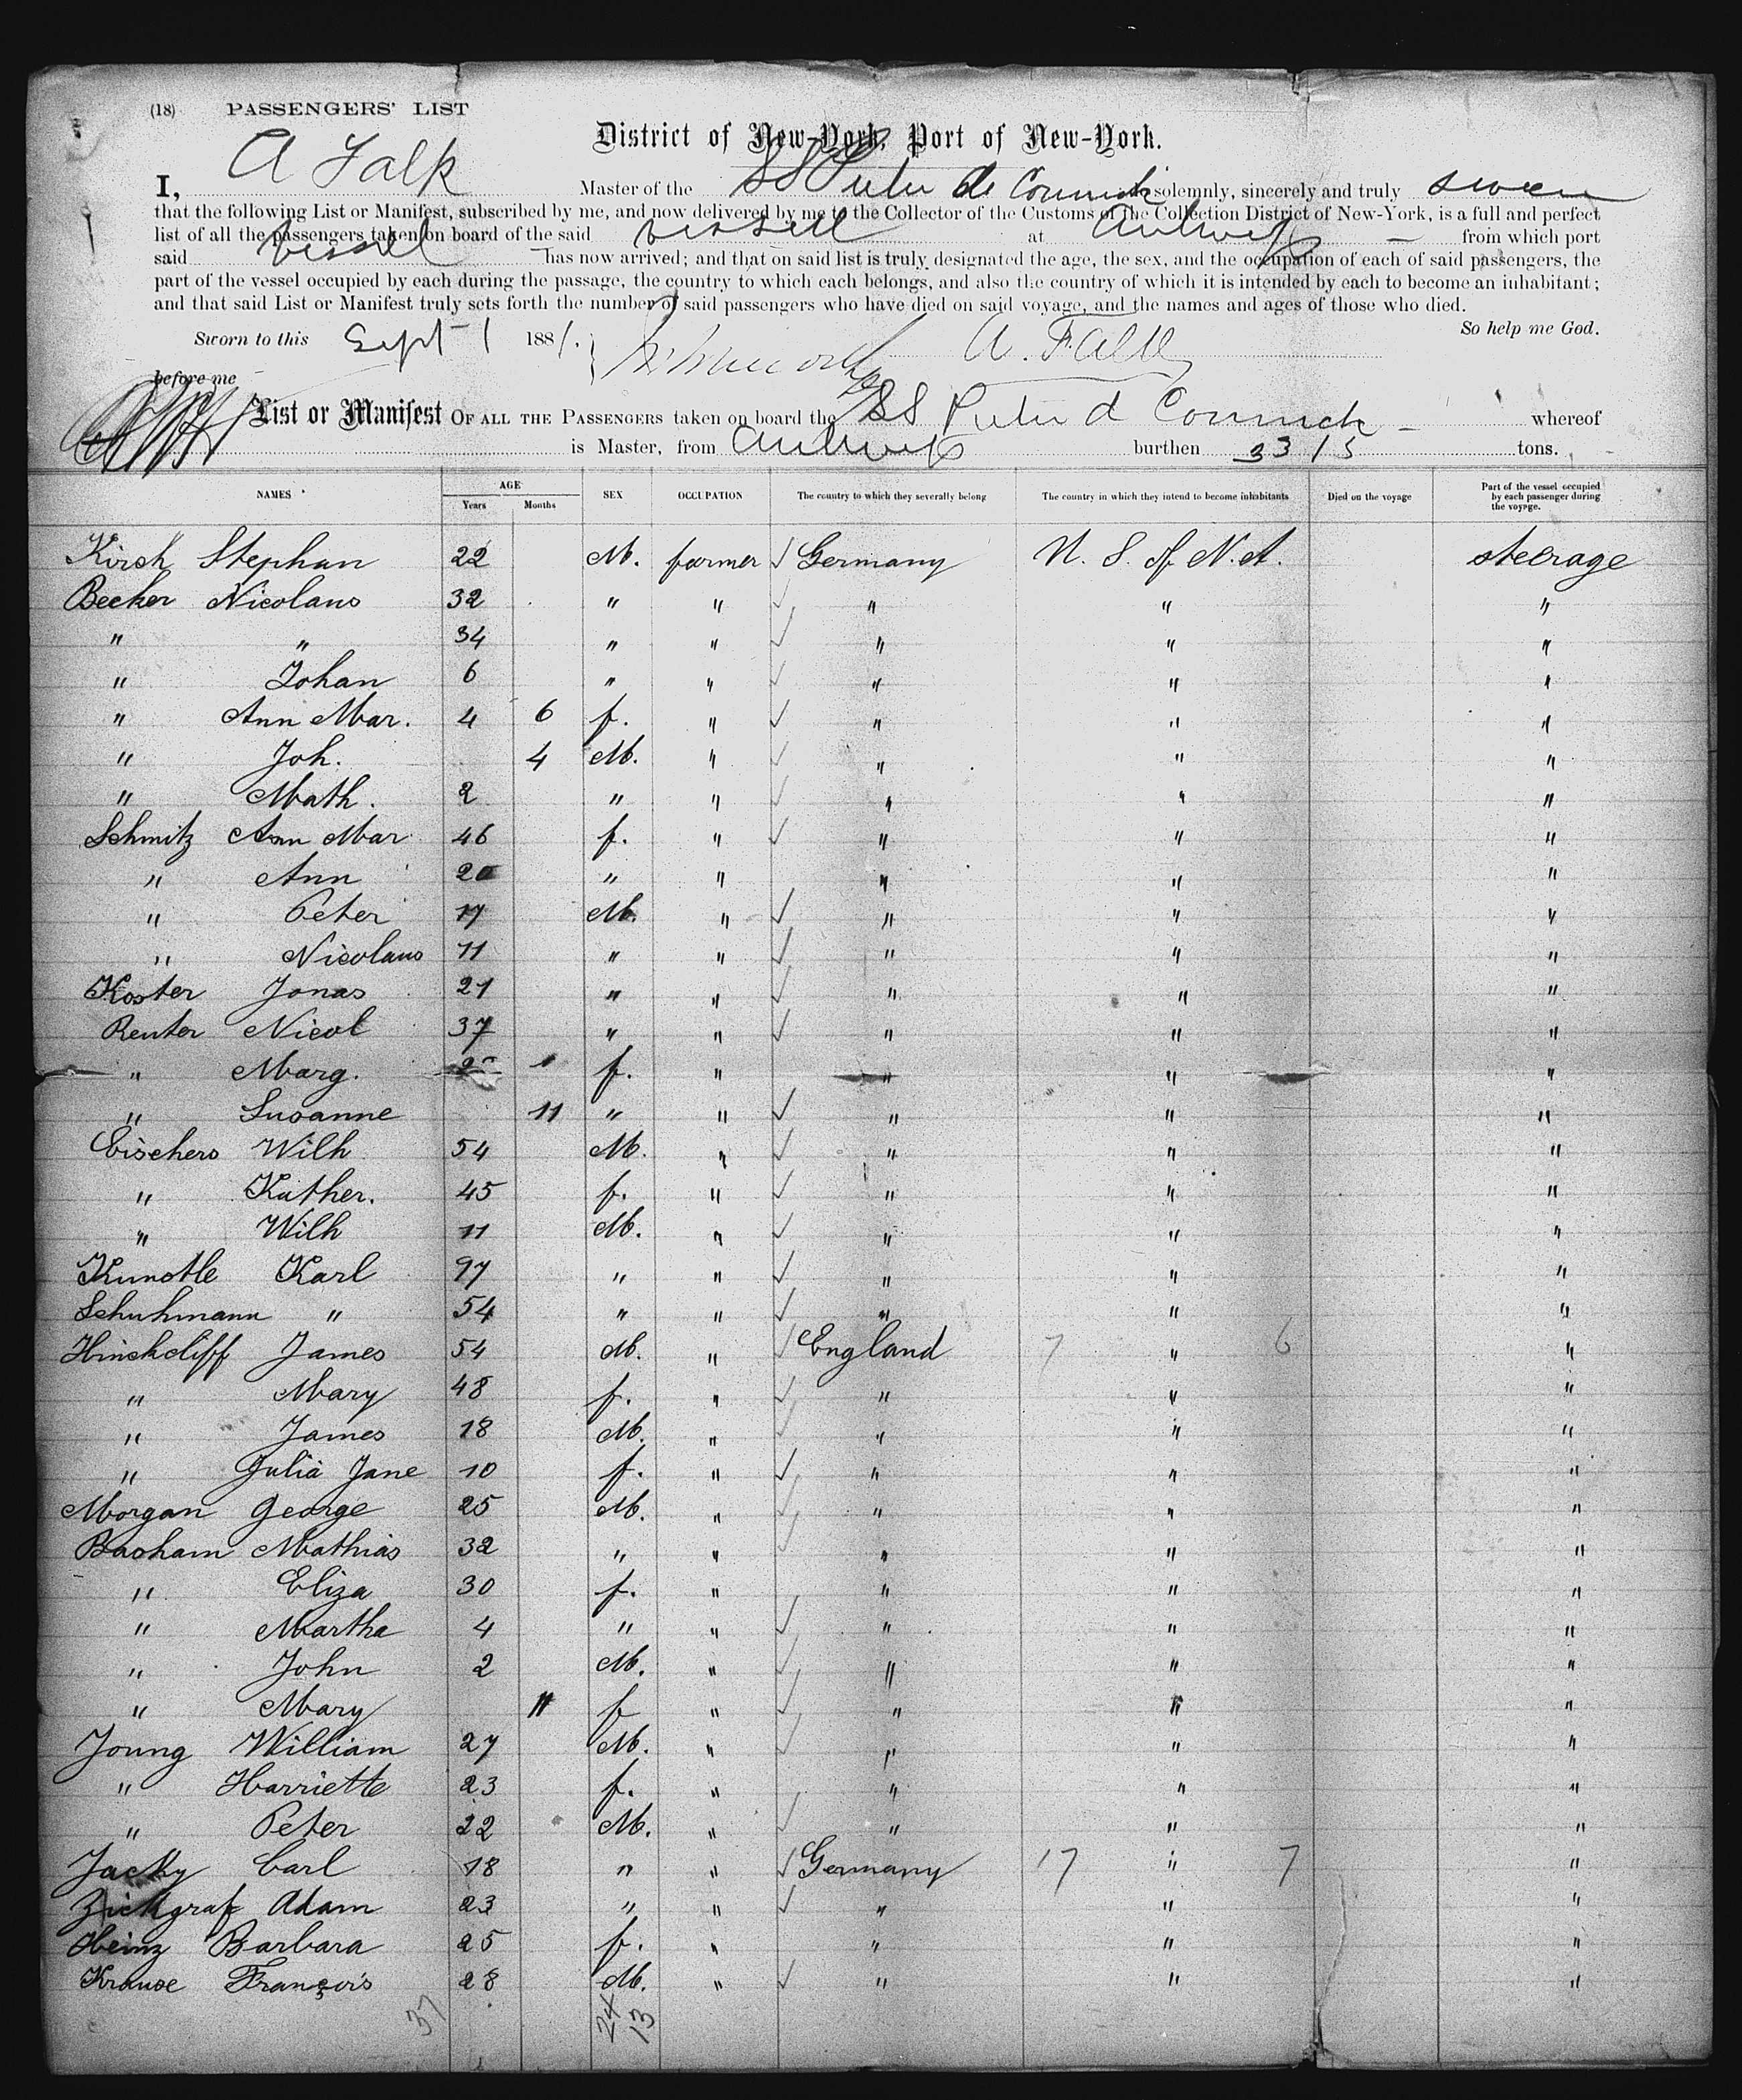 (18) PASSENGERS' LIST
District of New-York, Port of New-York.
I, A Falk Master of the SS Pieter de Coninck solemnly, sincerely and truly swear
that the following List or Manifest, subscribed by me, and now delivered by me to the Collector of the Customs of the Collection District of New-York, is a full and perfect
list of all the passengers taken on board of the said vessell at Antwerp from which port
said vessel has now arrived; and that on said list is truly designated the age, the sex, and the occupation of each of said passengers, the
part of the vessel occupied by each during the passage, the country to which each belongs, and also the country of which it is intended by each to become an inhabitant;
and that said List or Manifest truly sets forth the number of said passengers who have died on said voyage, and the names and ages of those who died.
So help me God.
Sworn to this Sept 1 1881. A. Falk
before me
List or Manifest OF ALL THE PASSENGERS taken on board the SS Pieter d Conninck whereof
is Master, from Antwerp burthen 3315 tons.
NAMES AGE Years Months SEX OCCUPATION The country to which they severally belong The country in which they intend to become inhabitants Died on the voyage Part of the vessel occupied by each passenger during the voyage.
Kirsh Stephan 22 M. farmer Germany U. S. of N. A. steerage
Becker Nicolaus 32 " " " " "
" " 34 " " " " "
" Johan 6 " " " " "
" Ann Mar. 4 6 f. " " " "
" Joh. 4 M. " " " "
" Math. 2 " " " " "
Schmitz Ann Mar 46 f. " " " "
" Ann 20 " " " " "
" Peter 17 M. " " " "
" Nicolaus 11 " " " " "
Koster Jonas 21 " " " " "
Reuter Nicol 37 " " " " "
" Marg. f. " " " "
" Susanne 11 " " " " "
Eischers Wilh 54 M. " " " "
" Kather. 45 f. " " " "
" Wilh 11 M. " " " "
Kunstle Karl 97 " " " " "
Schuhmann " 54 " " " " "
Hinchcliff James 54 M. " England 7 " 6 "
" Mary 48 f. " " " "
" James 18 M. " " " "
" Julia Jane 10 f. " " " "
Morgan George 25 M. " " " "
Basham Mathias 32 " " " " "
" Eliza 30 f. " " " "
" Martha 4 " " " " "
" John 2 M. " " " "
" Mary 11 f " " " "
Young William 27 M. " " " "
" Harriette 23 f. " " " "
" Peter 22 M. " " " "
Jacky Carl 18 " " Germany 17 " 7 "
Zickgraf Adam 23 " " " " "
Heinz Barbara 25 f. " " " "
Krause François 28 M. " " " "
37 24 13